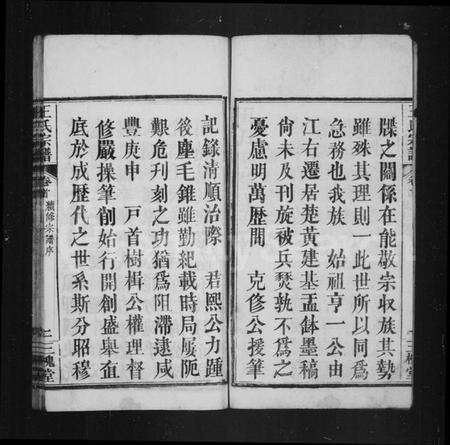 牒之關係在能敬宗收族其勢
雖殊其理則一此世所以同為
急務也我族　始祖亨一公由
江右遷居楚黃建基盂鉢墨稿
尚未及刊旋被兵焚孰不為之
憂慮明萬歷間　克修公援筆
記錄清順治際　君熙公力踵
後塵毛錐雖勤紀載時局屢阨
艱危刋刻之功猶為阻滯逮咸
豐庚申　戸首樹楫公權理督
修嚴操筆創始行開創盛舉宜
底於成歴代之世系斯分昭穆
王氏宗譜
卷首
續修宗譜序
三槐堂